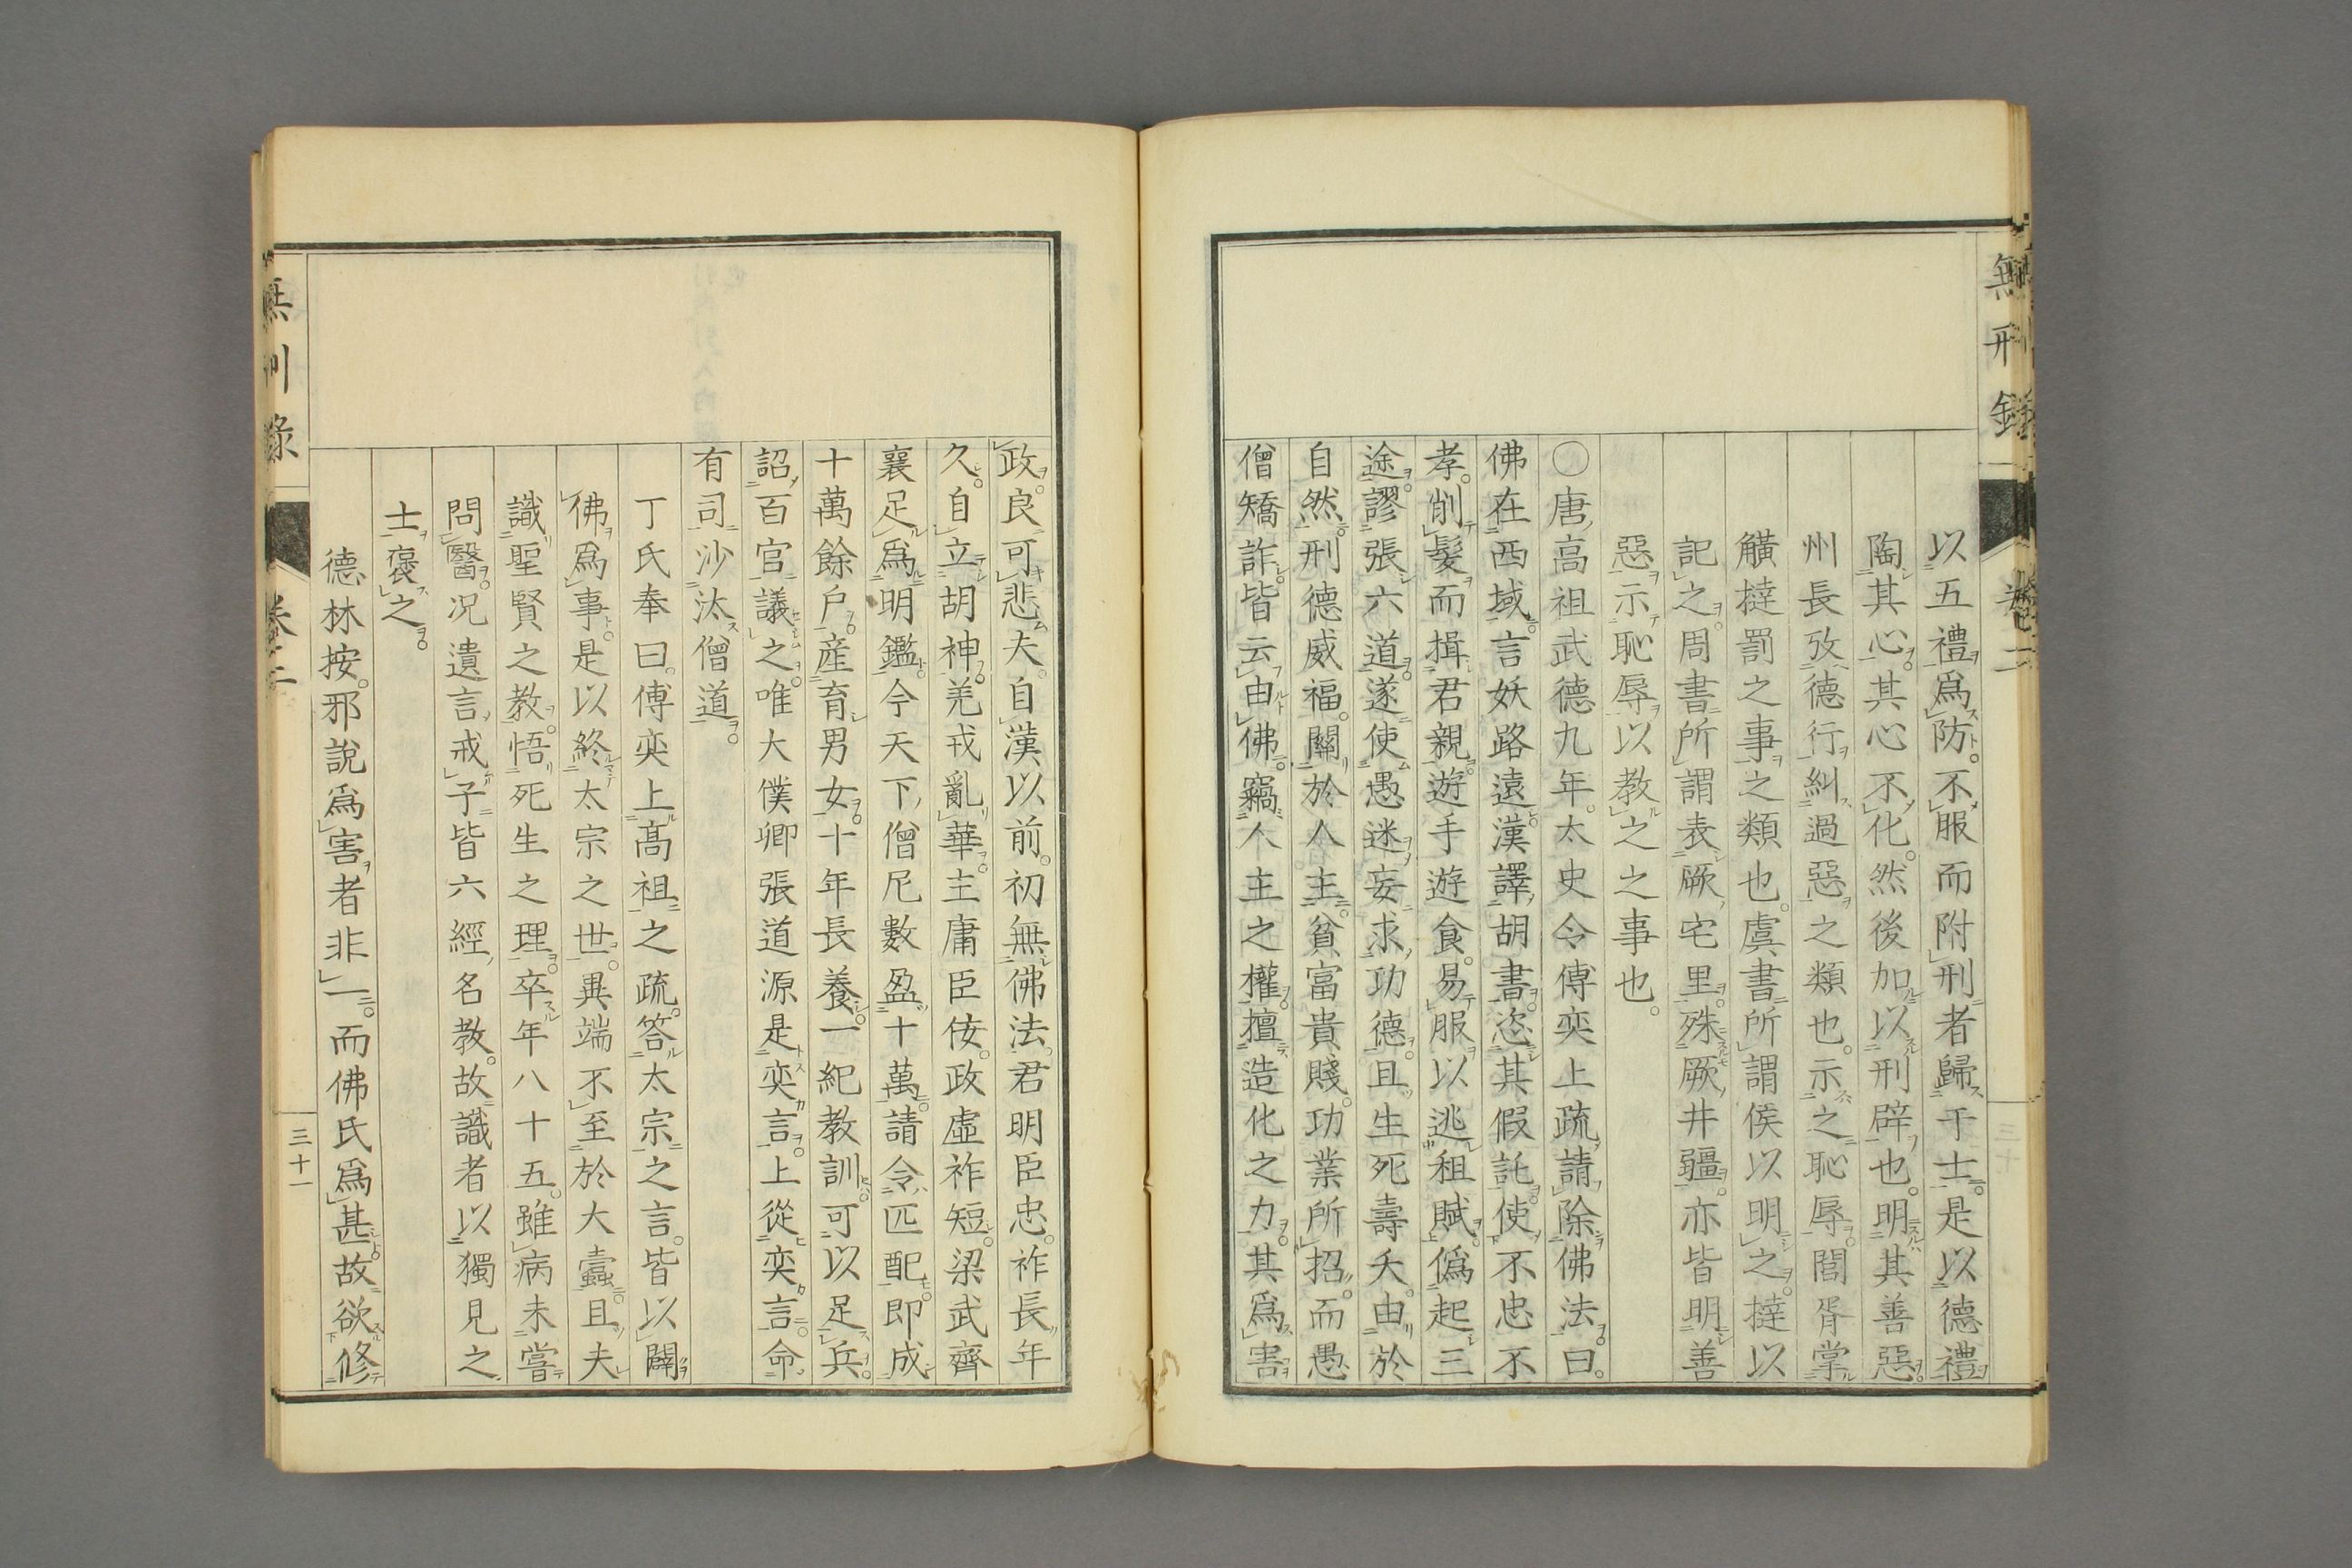 無刑錄
卷二
以五禮爲防。不服而附刑者歸于士。是以德禮
陶其心。其心不化。然後加以刑辟也。明其善惡。
州長攷德行糾過惡之類也。示之恥辱。閭胥掌
觵撻罰之事之類也。虞書所謂侯以明之。撻以
記之。周書所謂表厥宅里。殊厥井疆。亦皆明善
惡示恥辱以教之之事也。
○唐高祖武德九年。太史令傅奕上疏請除佛法。曰。
佛在西域。言妖路遠。漢譯胡書。恣其假託。使不忠不
孝。削髮而揖君親。遊手遊食。易服以逃租賦。僞起三
途。謬張六道。遂使愚迷妄求功德。且生死壽夭。由於
自然。刑德威福。關於人主。貧富貴賤。功業所招。而愚
僧矯詐。皆云由佛。竊人主之權。擅造化之力。其爲害
政。良可悲夫。自漢以前。初無佛法。君明臣忠。祚長年
久。自立胡神。羌戎亂華。主庸臣佞。政虛祚短。梁武齊
襄足爲明鑑。今天下僧尼數盈十萬。請令匹配。即成
十萬餘戶。産育男女。十年長養。一紀教訓。可以足兵。
詔百官議之。唯大僕卿張道源是奕言。上從奕言。命
有司沙汰僧道。
丁氏奉曰。傅奕上高祖之疏。答太宗之言。皆以闢
佛爲事。是以終太宗之世。異端不至於大蠹。且夫
識聖賢之教。悟死生之理。卒年八十五。雖病未嘗
問醫。况遺言戒子皆六經名教。故識者以獨見之
士褒之。
德林按。邪說爲害者非一。而佛氏爲甚。故欲修
卷二
三十一